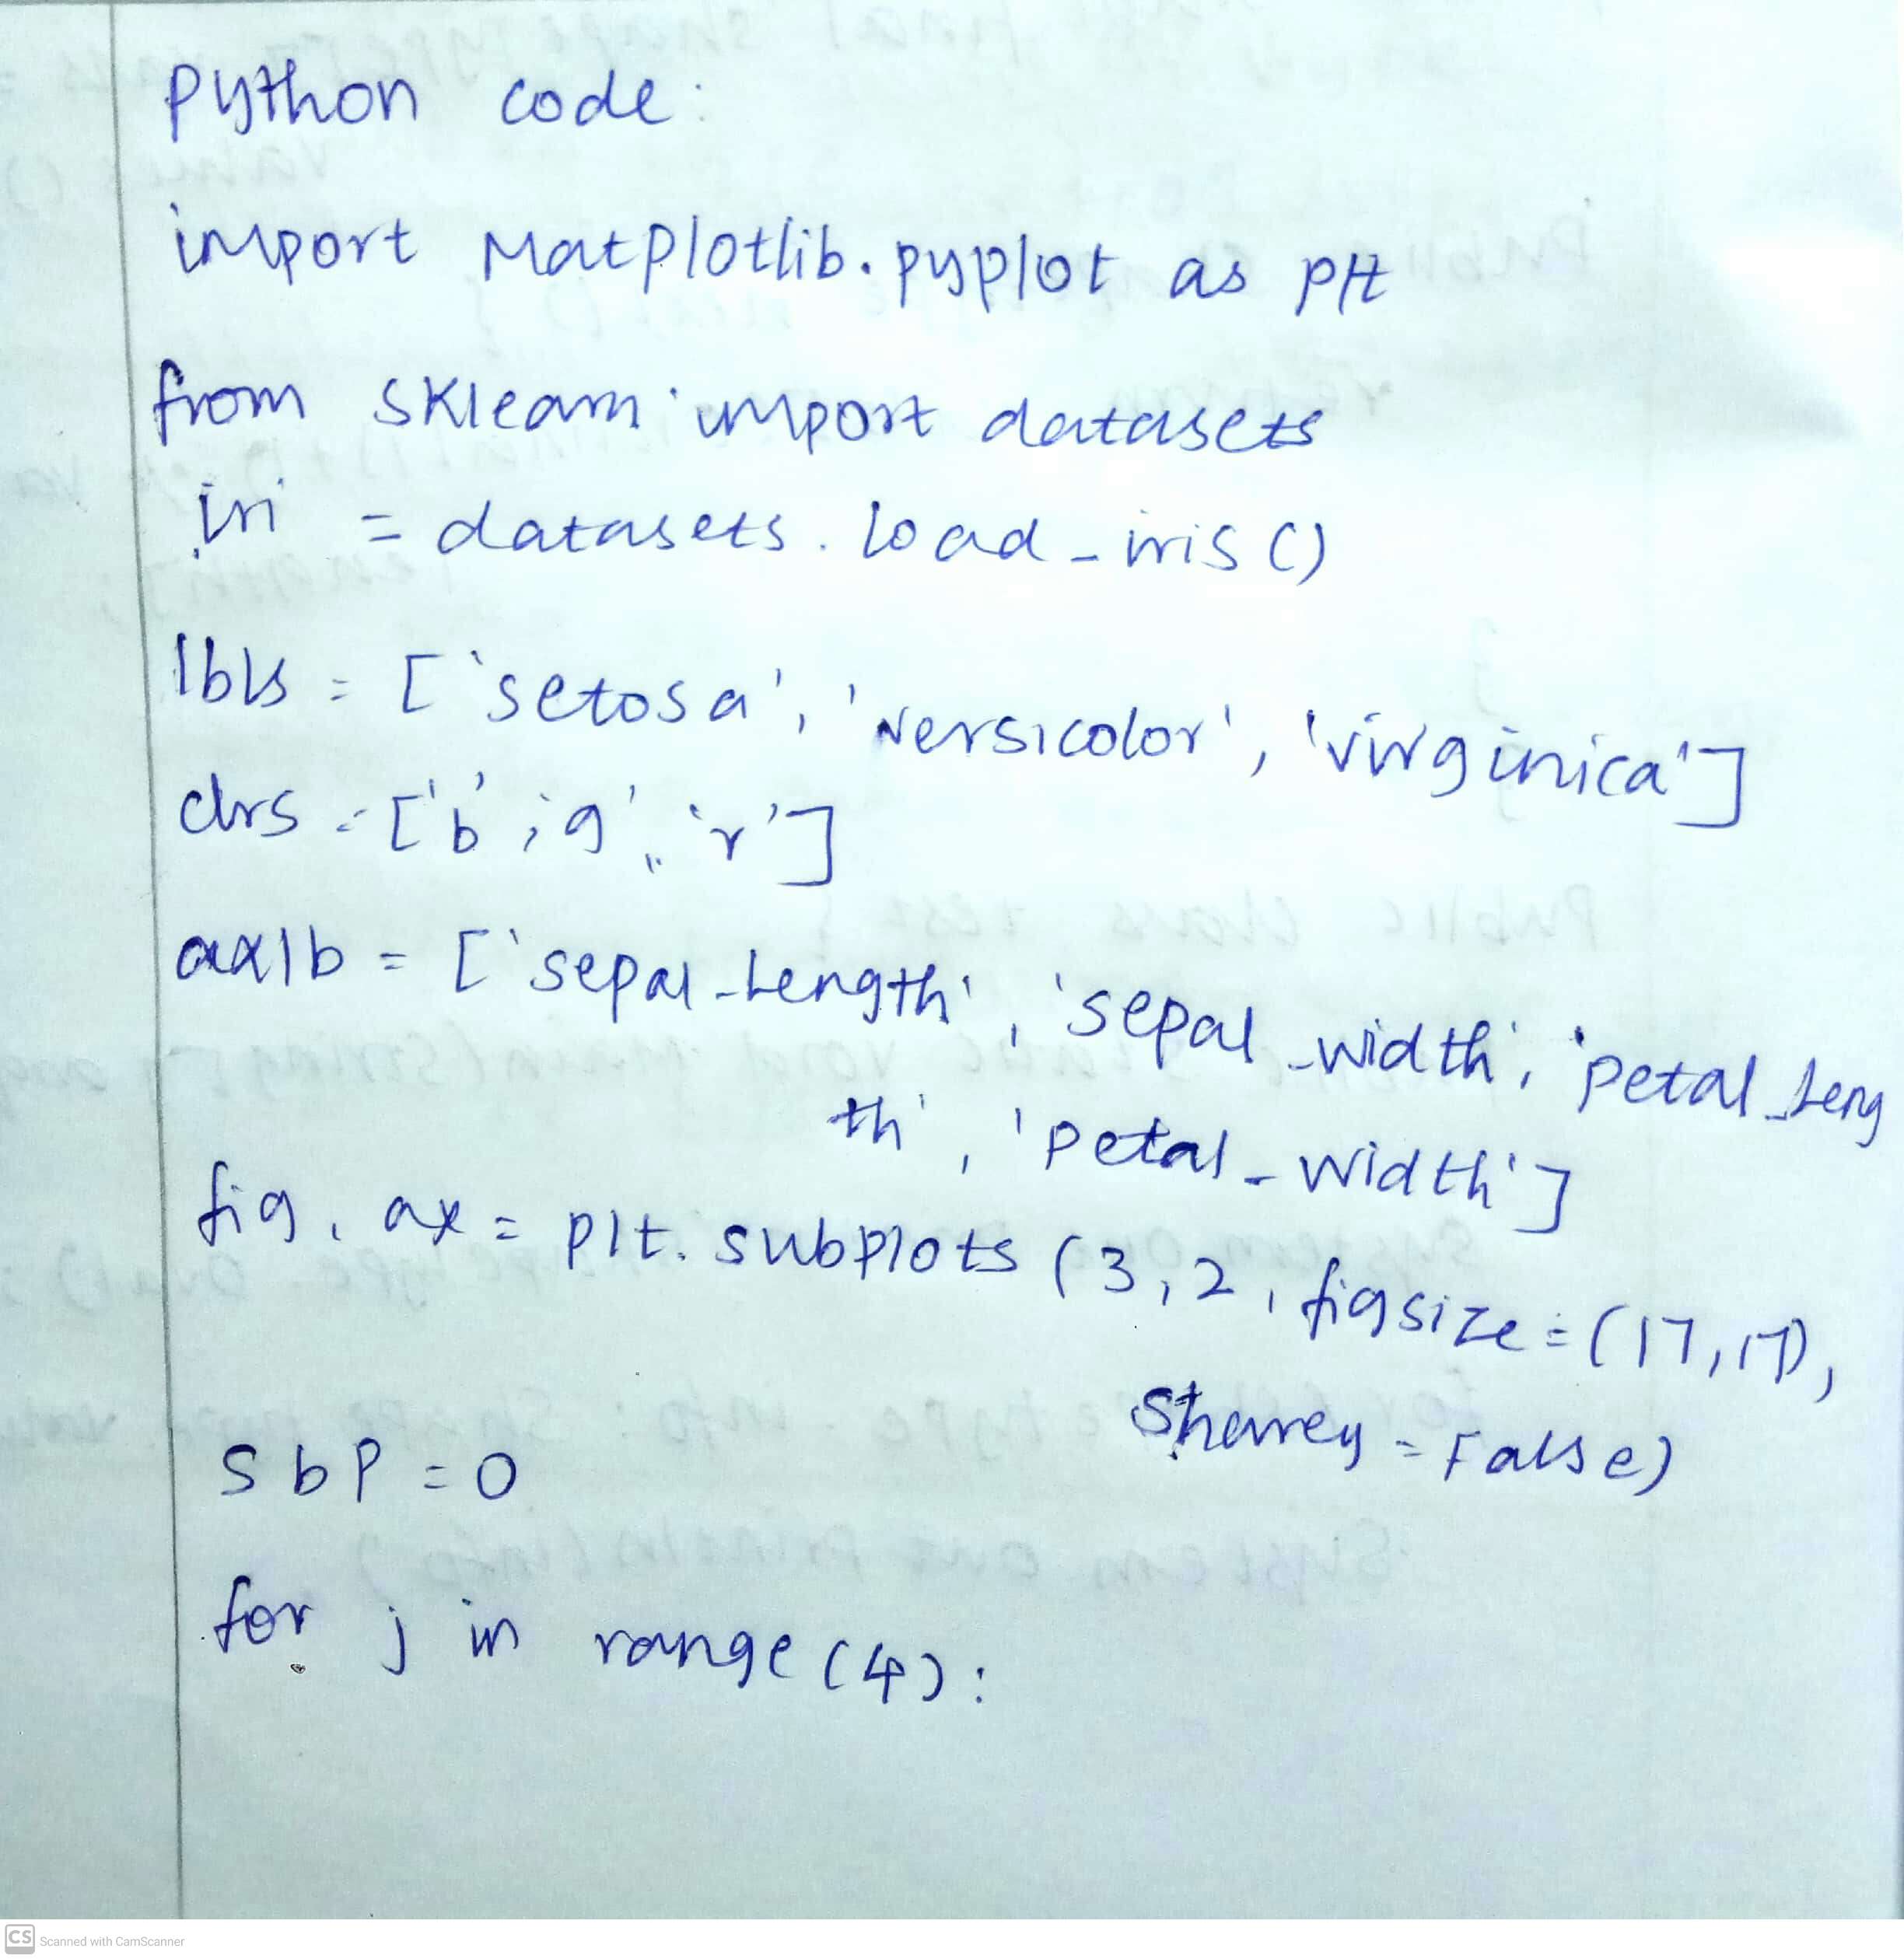 Python code:
import Matplotlib.pyplot as plt
from sklearn import datasets
iri = datasets.load_iris()
lbls = ['setosa', 'versicolor', 'virginica']
clrs = ['b', 'g', 'r']
axlb = ['sepal_Length', 'sepal_width', 'petal_Leng
th', 'petal_width']
fig, ax = plt.subplots (3,2, figsize=(17,17),
sharey = False)
sbP = 0
for j in range(4):
CS Scanned with CamScanner